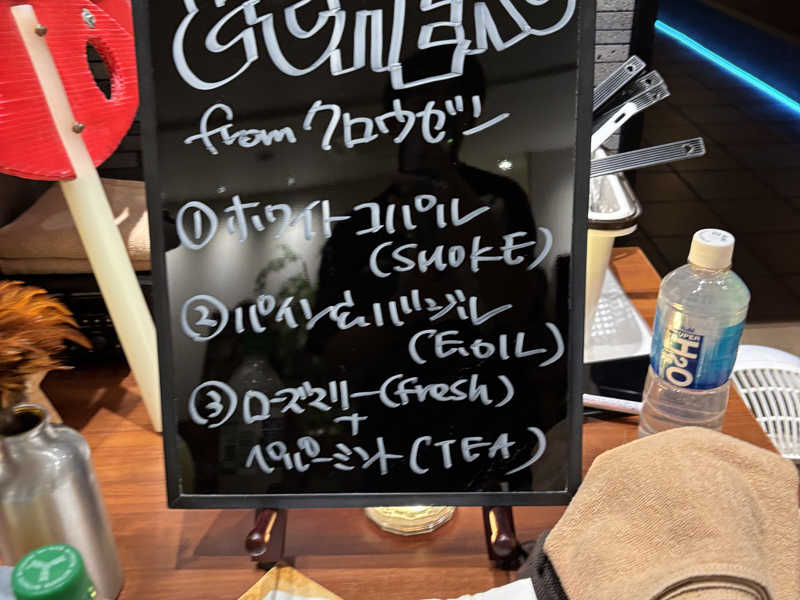 from クロウゼン
① ホワイトコパル
(SMOKE)
② パイン&バジル
(E.OIL)
③ ローズマリー(fresh)
+
ペパーミント(TEA)
SUPER
H2O